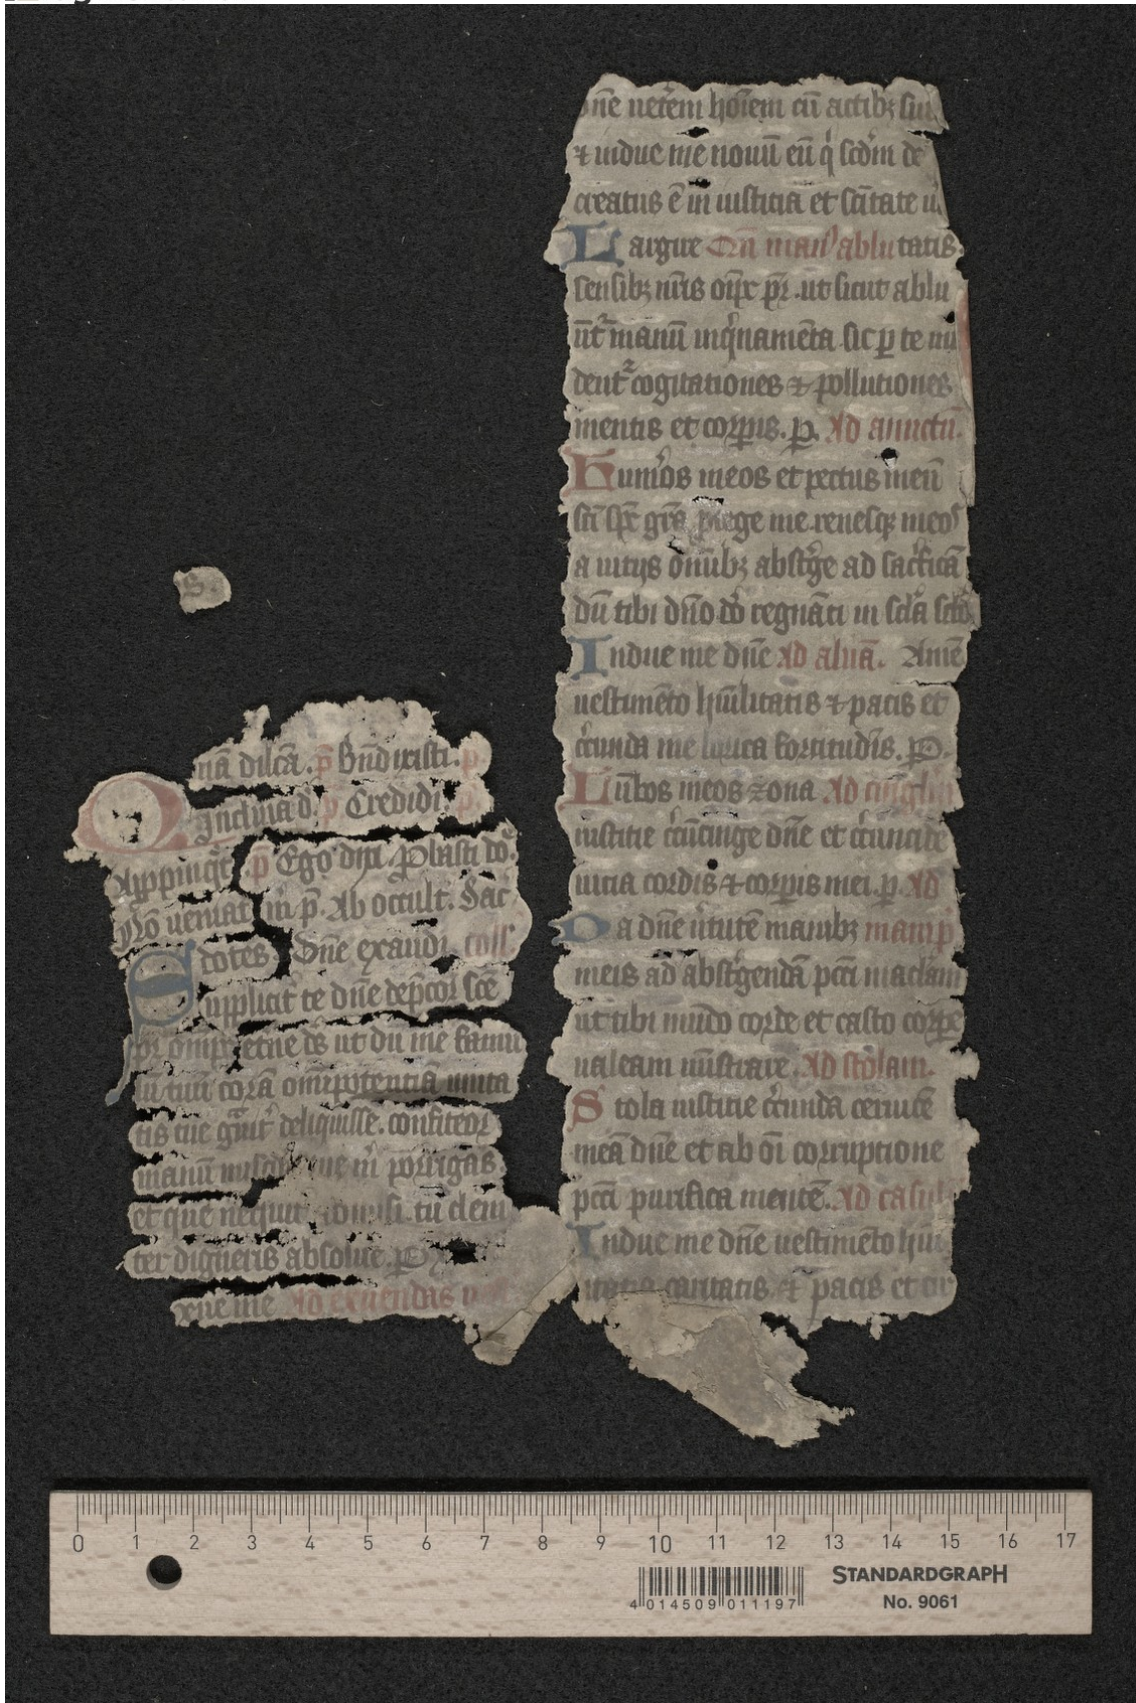 s.
nā dilcā. p̄ Bn̄dixisti. p
Inclina d. p̄ Credidi. p
Appinq̄t p̄ Ego dixi. Plasti do.
Nō veniat m̄ p̄. Ab occult. Sac
dotes Dn̄e exaudi coll
Supplicit te dn̄e dep̄cor scē
pr omp̄ etne ds ut dū me famu
lū tuū corā omīpotentiā
tis tue gᵃuit deliquisse. confiteor
manū mīe m̄ porrigas.
et que nequit tū clem
ter digneris absolue. P
xue me Ad exuendas
one ueterem hoīem cū actibꝫ suis
⁊ indue me nouū eū qͥ scdm de
creatus ē in iusticia et scītate u
Largire Qn̄ man⁹ ablu tatis.
sensibꝫ nr̄is oīpx pr̄. ut sicut ablu
ūtᷣ manuū inqͥnamēta sic ꝑ te mū
dentᷣ cogitationes ⁊ pollutiones
mentis et corpis. P. Ad amictū.
Humōs meos et pectus meū
scī spc grā ptege me renesqꝫ meos
a uitijs om̄ibꝫ abstgͥe ad sacͥficā
dū tibi dn̄o dō regnāti in scla sclo
Indue me dn̄e Ad albā. Amē
uestimēto hūilitatis ⁊ pacis et
cͥcūnda me lorica fortitudīs. P.
Lūbos meos zona Ad cingl
iusticie cͥcūcinge dn̄e et cͥcūncide
uicia cordis ⁊ corpis mei. p. Ad
Da dn̄e uͥtutē manibꝫ manip
meis ad abstgͥendā pcci maclam
ut tibi mūdo corde et casto corpe
ualeam mīstrare. Ad stolam.
Stola iusticie cͥcūnda ceruicē
meā dn̄e et ab oī corruptione
pcci purifica mentē. Ad casul
Indue me dn̄e uestimēto hūi
caritatis. ⁊ pacis et cir
0 1 2 3 4 5 6 7 8 9 10 11 12 13 14 15 16 17
STANDARDGRAPH
No. 9061
4 014509 011197